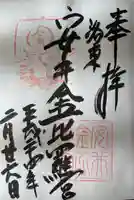 奉拝
洛東
安井金比羅宮
平成
年
二月廿六日